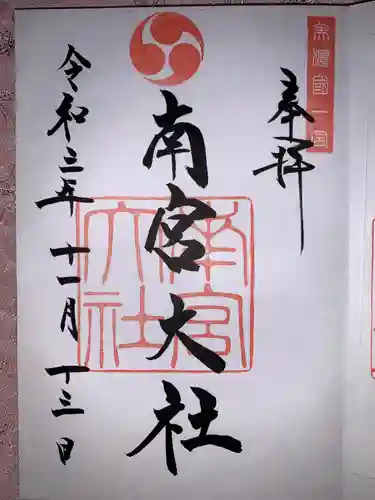 美濃國一宮
奉拝
南宮大社
南宮大社
令和三年十一月十三日